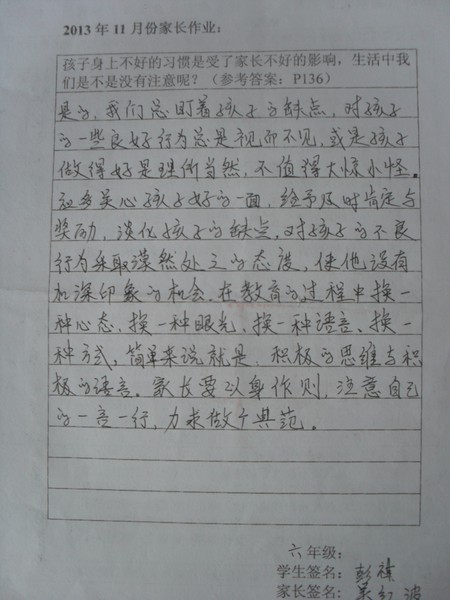 2013 年 11 月份家长作业：
孩子身上不好的习惯是受了家长不好的影响，生活中我
们是不是没有注意呢？（参考答案：P136）
是的，我们总盯着孩子的缺点，对孩子
的一些良好行为总是视而不见，或是孩子
做得好是理所当然，不值得大惊小怪。
应多关心孩子好的一面，给予及时肯定与
奖励，淡化孩子的缺点，对孩子的不良
行为采取漠然处之的态度，使他没有
加深印象的机会，在教育的过程中换一
种心态、换一种眼光、换一种语言、换一
种方式，简单来说就是，积极的思维与积
极的语言。家长要以身作则，注意自己
的一言一行，力求做个典范。
六年级：
学生签名：彭祺
家长签名：吴红波